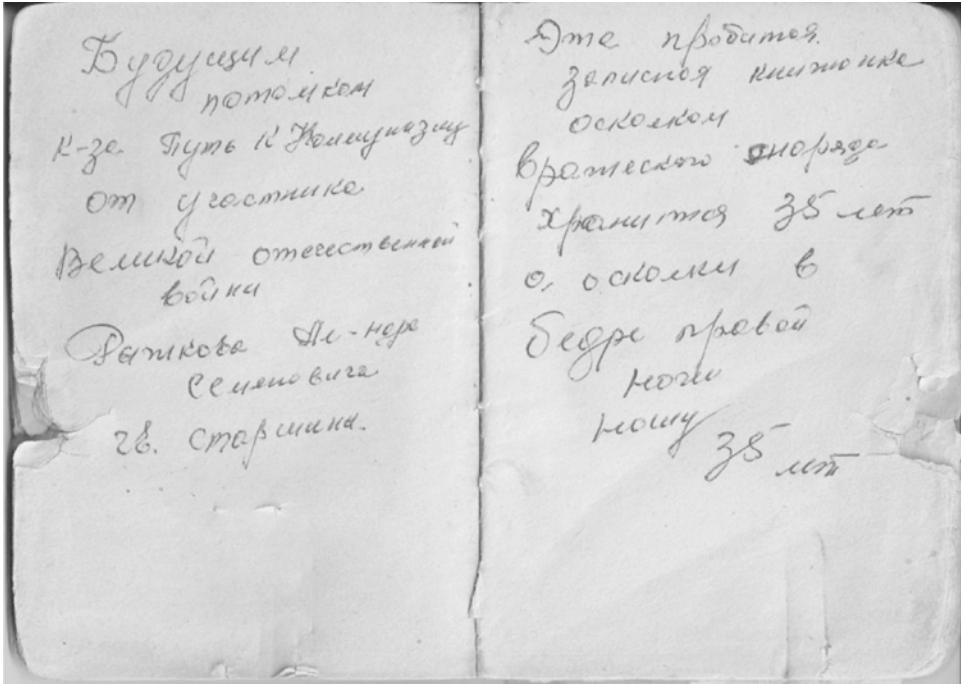 Будущим
потомкам
к-за Путь к Коммунизму
от участника
Великой отечественной
войны
Рыжкова Ал-ндра
Семеновича
гв. Старшина.
Эта пробитая
записная книжонка
осколком
вражеского снаряда
хранится 35 лет
о, осколки в
бедре правой
ноги
ношу
35 лет